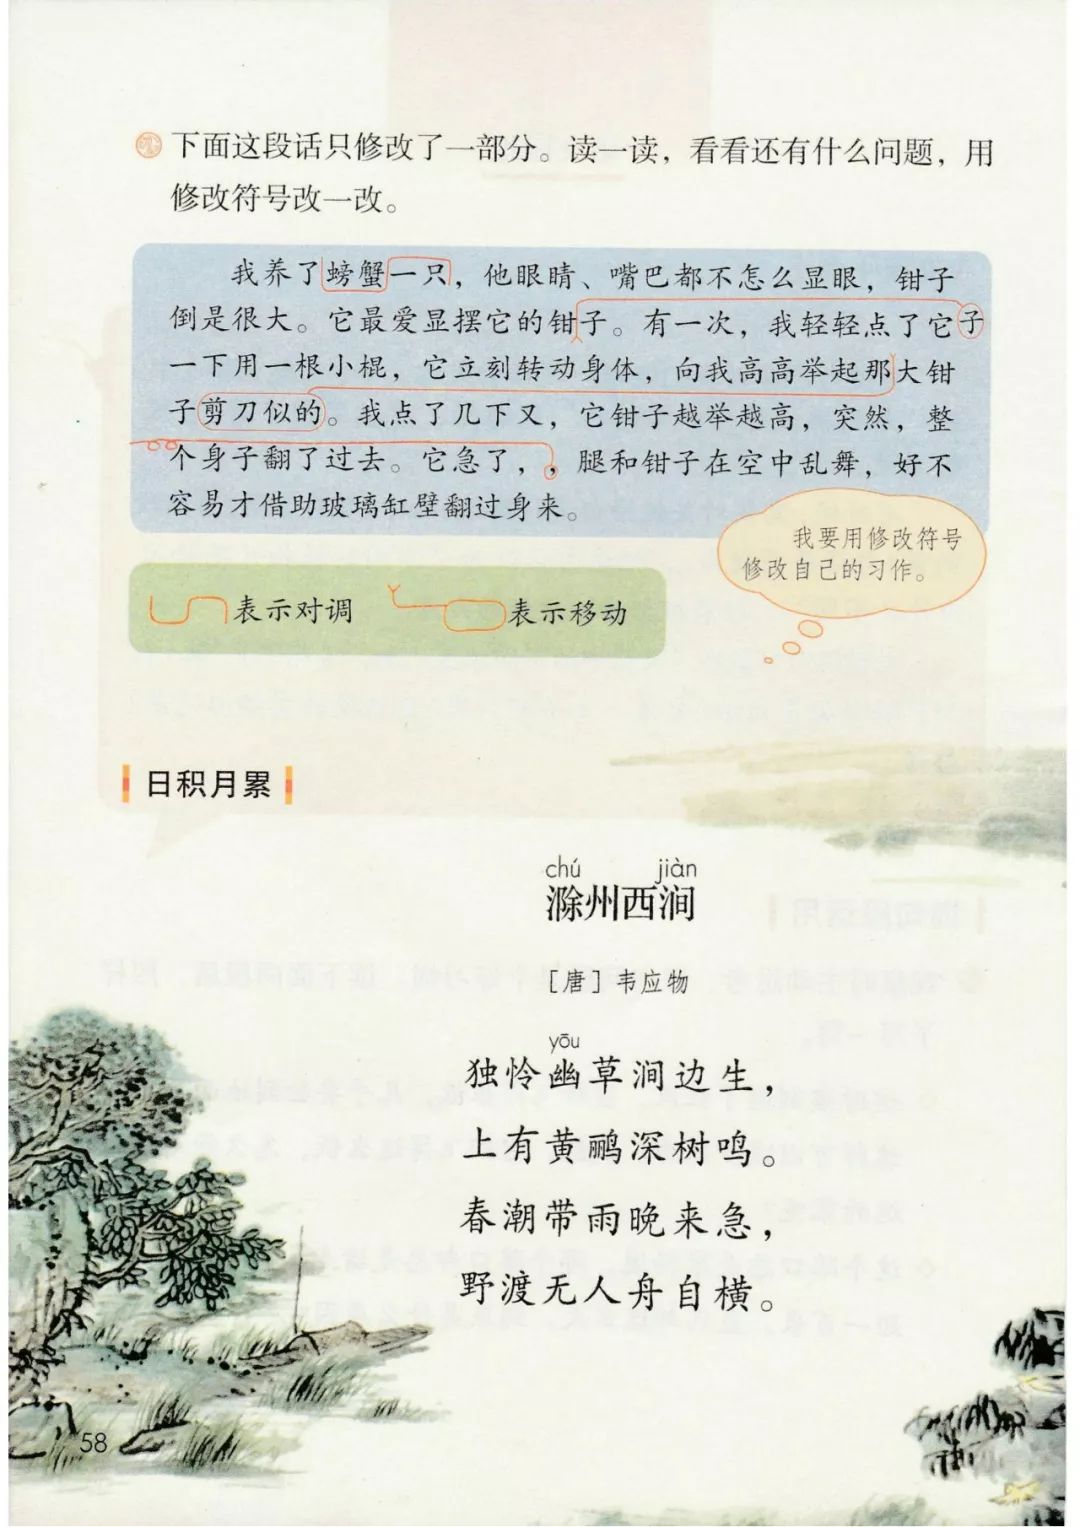 下面这段话只修改了一部分。读一读，看看还有什么问题，用
修改符号改一改。
我养了螃蟹一只，他眼睛、嘴巴都不怎么显眼，钳子
倒是很大。它最爱显摆它的钳子。有一次，我轻轻点了它子
一下用一根小棍，它立刻转动身体，向我高高举起那大钳
子剪刀似的。我点了几下又，它钳子越举越高，突然，整
个身子翻了过去。它急了，，腿和钳子在空中乱舞，好不
容易才借助玻璃缸壁翻过身来。
我要用修改符号
修改自己的习作。
表示对调 表示移动
日积月累
chú jiàn
滁州西涧
［唐］韦应物
yōu
独怜幽草涧边生，
上有黄鹂深树鸣。
春潮带雨晚来急，
野渡无人舟自横。
58